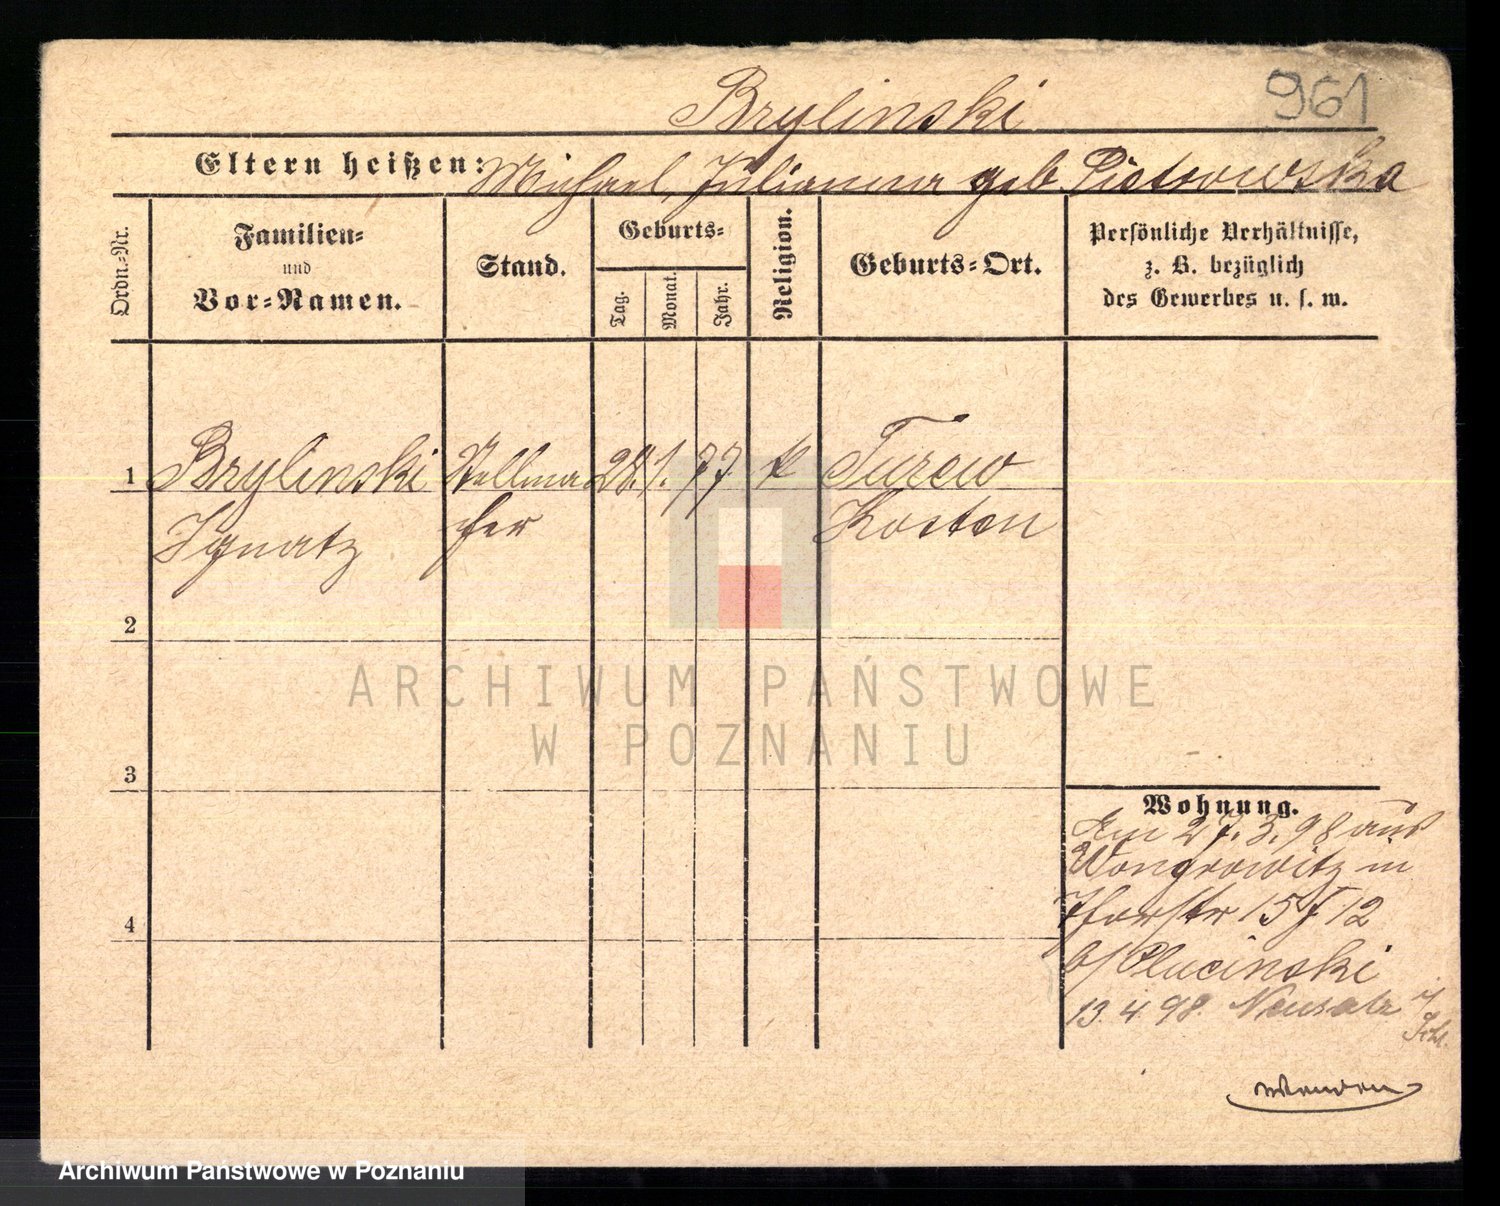 Brylinski
961
Eltern heißen: Michael, Julianna geb. Piotrowska
Ordn.-Nr.
Familien-
und
Vor-Namen.
Stand.
Geburts-
Tag.
Monat.
Jahr.
Religion.
Geburts-Ort.
Persönliche Verhältnisse,
z. B. bezüglich
des Gewerbes u. s. w.
1 Brylinski Stellma 28. 1. 77. k Turew
Ignatz cher Kosten
2
3
4
Wohnung.
Am 27.3.98 aus
Wongrowitz in
15 12
b/ Plucinski
13.4.98. Neusalz
Wenden
ARCHIWUM PAŃSTWOWE
W POZNANIU
Archiwum Państwowe w Poznaniu